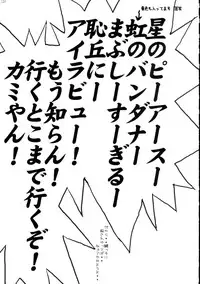 星のピーアースー
虹のバンダナー
まぶしーすーぎるー
恥丘にー
アイラビュー!
もう知らん!
行くとこまで行くぞ!
カミやん!